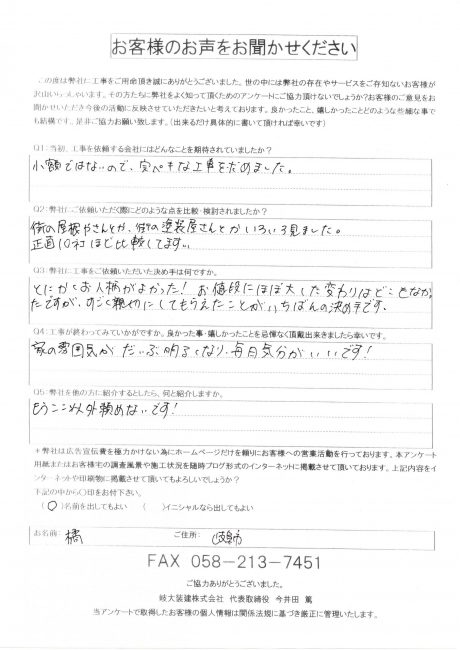 お客様のお声をお聞かせください
この度は弊社に工事をご用命頂き誠にありがとうございました。世の中には弊社の存在やサービスをご存知ないお客様が
沢山いらっしゃいます。その方たちに弊社をよく知って頂くためのアンケートにご協力頂けないでしょうか?お客様のご意見をお
聞かせいただき今後の活動に反映させていただきたいと考えております。良かったこと、嬉しかったことどのような些細な事で
も結構です。是非ご協力お願い致します。（出来るだけ具体的に書いて頂ければ幸いです）
Q1:当初、工事を依頼する会社にはどんなことを期待されていましたか?
小額ではないので、完ペキな工事をだめました。
Q2:弊社にご依頼いただく際にどのような点を比較・検討されましたか?
街の屋根やさんとか、街の塗装屋さんとかいろいろ見ました。
正直10社ほど比較してます。
Q3:弊社に工事をご依頼いただいた決め手は何ですか。
とにかくお人柄がよかった! お値段にほぼ大した変わりはどこもなかっ
たですが、すごく親切にしてもらえたことがいちばんの決め手です。
Q4:工事が終わってみていかがですか。良かった事・嬉しかったことを忌憚なく頂戴出来きましたら幸いです。
家の雰囲気がだいぶ明るくなり、毎日気分がいいです!
Q5:弊社を他の方に紹介するとしたら、何と紹介しますか。
もうここ以外頼めないです!
＊弊社は広告宣伝費を極力かけない為にホームページだけを頼りにお客様への営業活動を行っております。本アンケート
用紙またはお客様宅の調査風景や施工状況を随時ブログ形式のインターネットに掲載させて頂いております。上記内容をイ
ンターネットや印刷物に掲載させて頂いてもよろしいでしょうか?
下記の中から〇印をお付下さい。
(〇)名前を出してもよい ( )イニシャルなら出してもよい
お名前: 橘 ご住所: 岐阜市
FAX 058-213-7451
ご協力ありがとうございました。
岐大装建株式会社 代表取締役 今井田 篤
当アンケートで取得したお客様の個人情報は関係法規に基づき厳正に管理いたします。